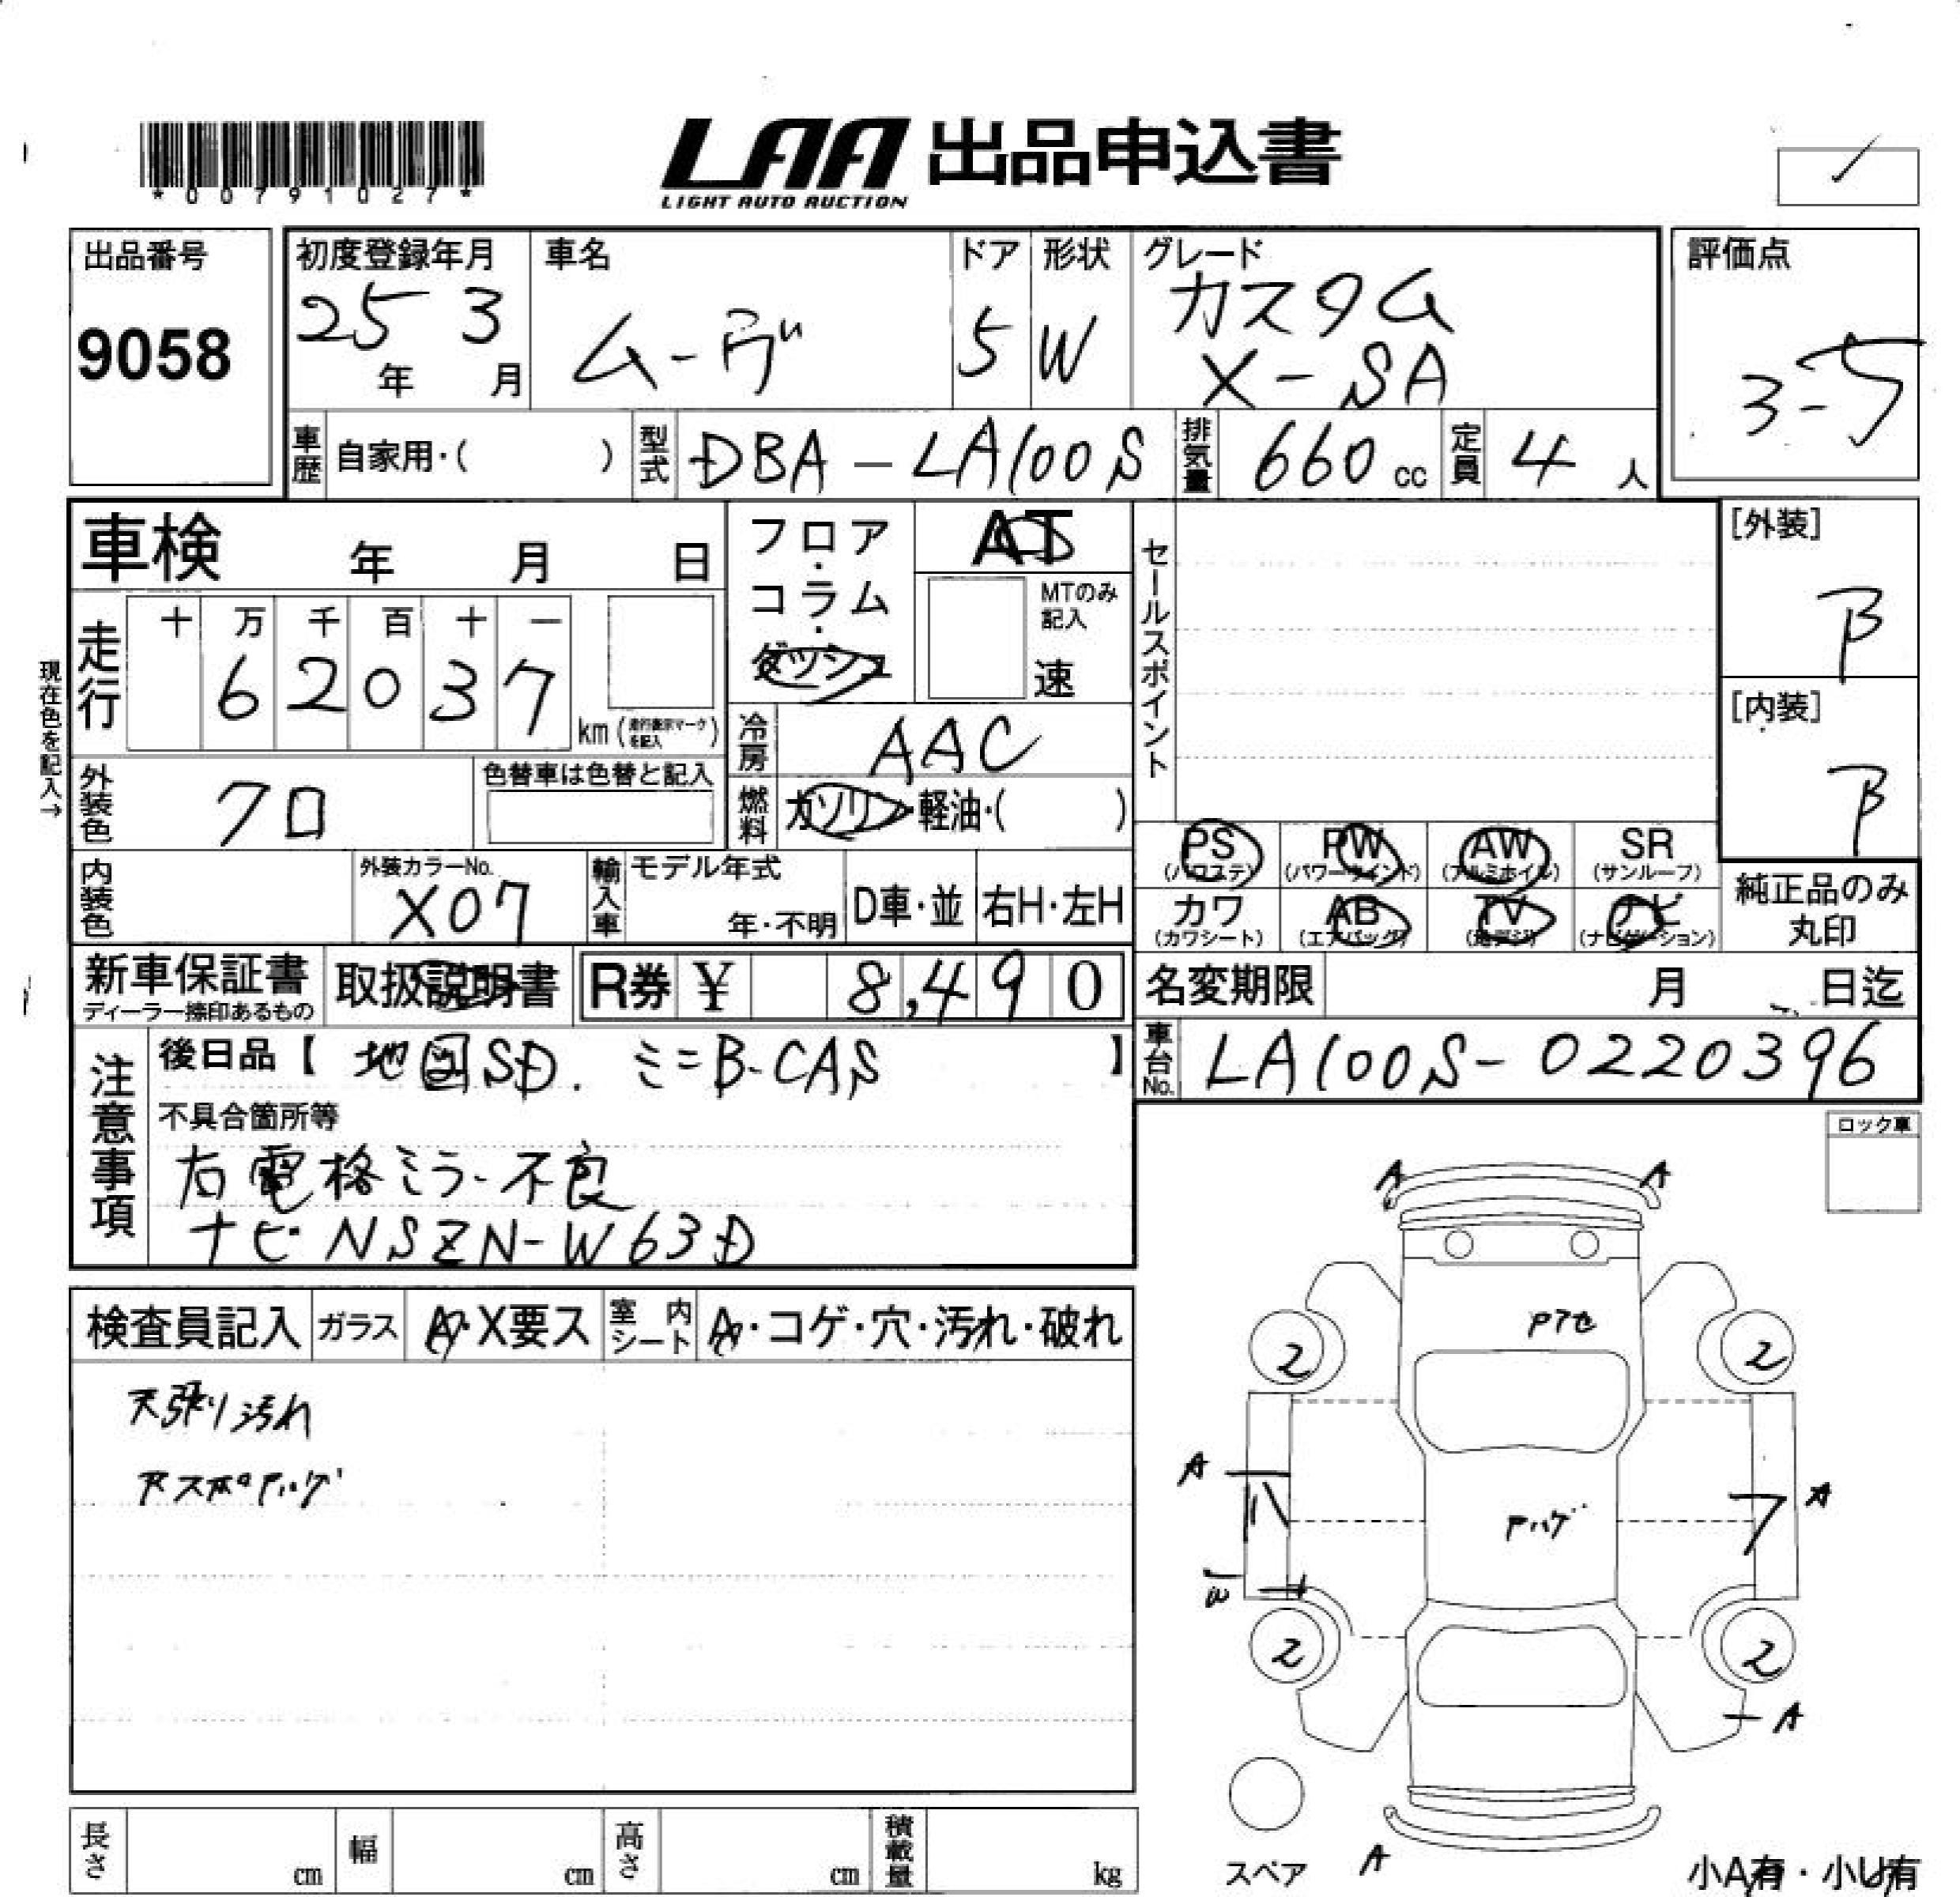 *00791027*
LAA 出品申込書
LIGHT AUTO AUCTION
出品番号
9058
初度登録年月
25年 3月
車名
ムーヴ
ドア
5
形状
W
グレード
カスタム
X-SA
評価点
3-5
車歴 自家用・( )
型式 DBA-LA100S
排気量 660cc
定員 4人
車検 年 月 日
フロア・コラム・ダッシュ
AT
MTのみ記入
速
セールスポイント
[外装]
B
[内装]
B
現在色を記入→
走行
十 万 千 百 十 一
6 2 0 3 7
km (走行表示マークを記入)
冷房 AAC
燃料 ガソリン・軽油・( )
外装色 クロ
色替車は色替と記入
内装色
外装カラーNo.
X07
輸入車
モデル年式
年・不明
D車・並
右H・左H
PS (パワステ)
PW (パワーウインド)
AW (アルミホイル)
SR (サンルーフ)
カワ (カワシート)
AB (エアバッグ)
TV (地デジ)
ナビ (ナビゲーション)
純正品のみ丸印
新車保証書
ディーラー捺印あるもの
取扱説明書
R券 ¥ 8,490
名変期限 月 日迄
車台No. LA100S-0220396
注意事項
後日品【 地図SD. ミニB-CAS 】
不具合箇所等
右電格ミラー不良
ナビ NSZN-W63D
ロック車
検査員記入
ガラス A・X要ス
室内シート A・コゲ・穴・汚れ・破れ
天張り汚れ
A A
Pアセ
2 2
A
A
Pハゲ
2 2
A
A
スペア
小A有・小U有
長さ cm
幅 cm
高さ cm
積載量 kg